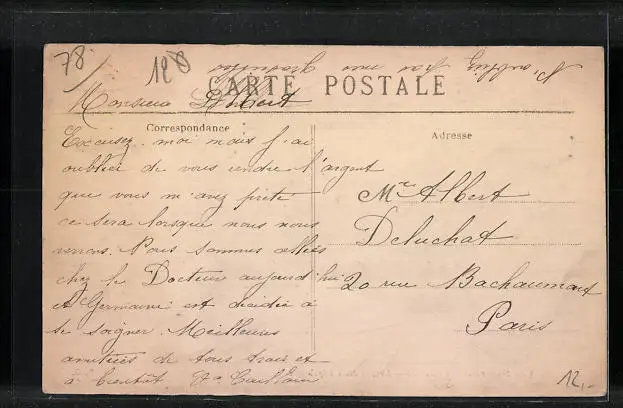 78
128
N'oubliez pas mes
CARTE POSTALE
Monsieur Albert
Correspondance
Excusez-moi mais j'ai
oublier de vous rendre l'argent
que vous m'avez prêté
ce sera lorsque nous nous
verrons. Nous sommes allés
chez le Docteur aujourd'hui
et Germaine est décidée à
se soigner. Meilleures
amitiées de tous trois et
à bientôt
Adresse
Mr Albert
Deluchat
20 rue Bachaumont
Paris
12,-